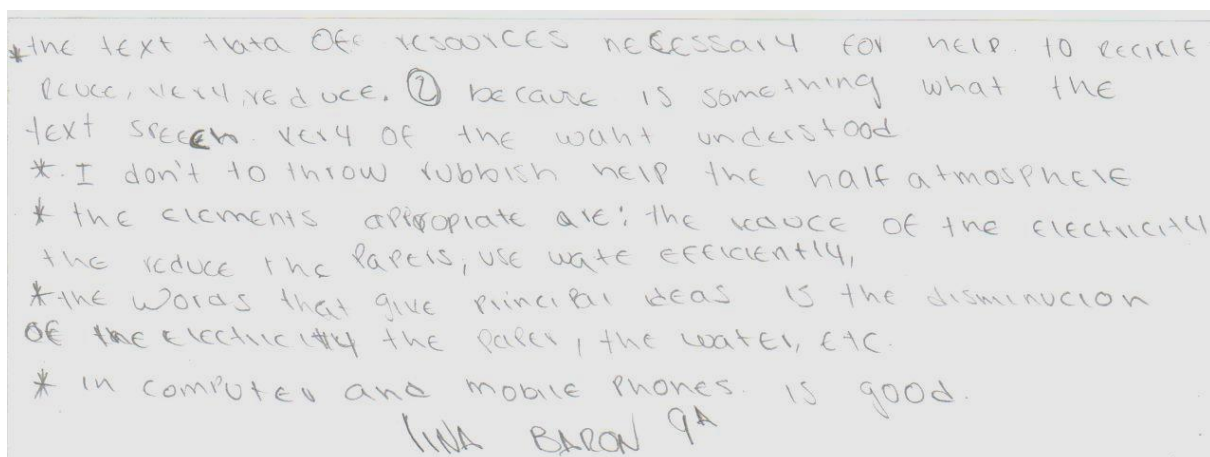 *the text trata OFF resources necessary for help. to recicle
reuce, very, reduce. ② because is something what the
text speech very of the waht understood
*. I don't to throw rubbish help the half atmosphere
* the elements appropiate are: the reduce of the electricity
the reduce the papers, use wate efficiently,
*the words that give principal ideas is the disminucion
of the electricity the paper, the water, etc.
* in computer and mobile phones. is good.
BARON 9A